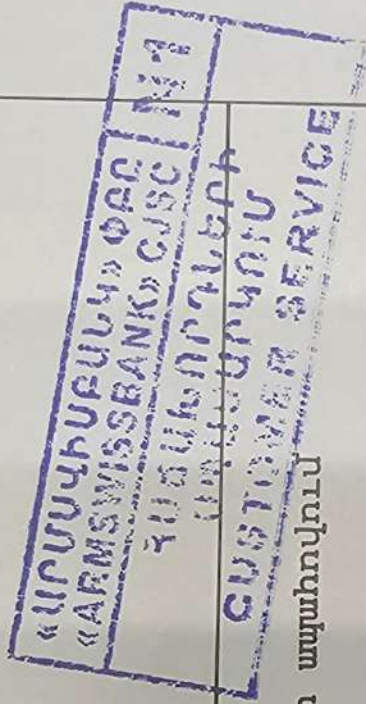 «ԱՐՄՍՎԻՍԲԱՆԿ» ՓԲԸ
«ARMSWISSBANK» CJSC
N1
ՀԱՃԱԽՈՐԴՆԵՐԻ
ՍՊԱՍԱՐԿՈՒՄ
CUSTOMER SERVICE
ապահովում